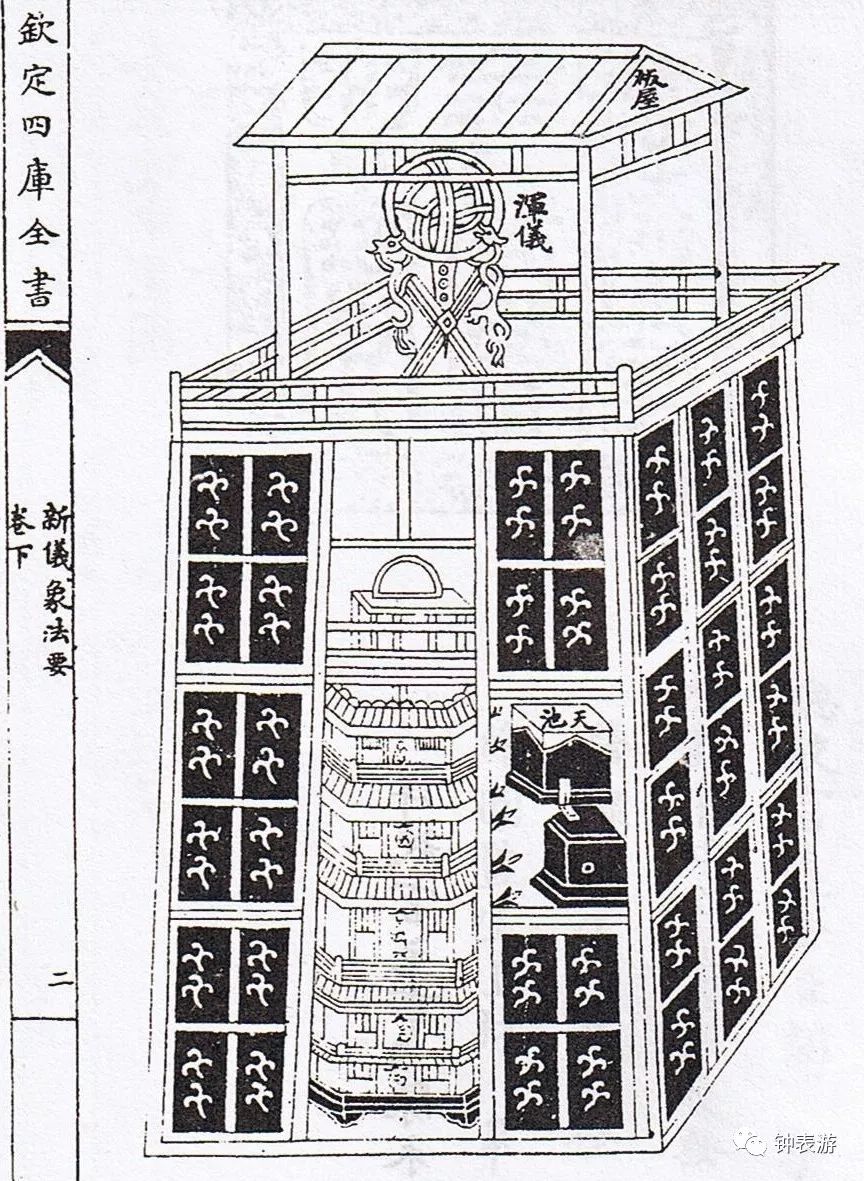 欽定四庫全書
新儀象法要
卷下
二
板屋
渾儀
天池
钟表游